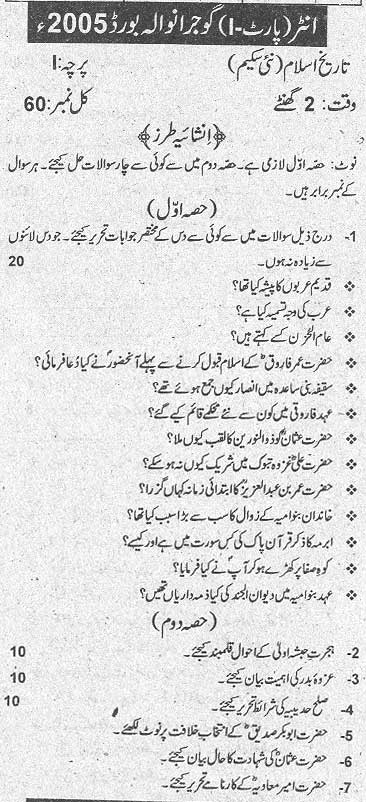 انٹر (پارٹ-I) گوجرانوالہ بورڈ 2005ء
تاریخ اسلام (نئی سکیم) پرچہ: I
وقت: 2 گھنٹے کل نمبر: 60
﴿انشائیہ طرز﴾
نوٹ: حصہ اوّل لازمی ہے۔ حصہ دوم میں سے کوئی سے چار سوالات حل کیجئے۔ ہر سوال
کے نمبر برابر ہیں۔
(حصہ اوّل)
1- درج ذیل سوالات میں سے کوئی سے دس کے مختصر جوابات تحریر کیجئے۔ جو دس لائنوں
سے زیادہ نہ ہوں۔ 20
❖ قدیم عربوں کا پیشہ کیا تھا؟
❖ عرب کی وجہ تسمیہ کیا ہے؟
❖ عام الحزن کسے کہتے ہیں؟
❖ حضرت عمر فاروقؓ کے اسلام قبول کرنے سے پہلے آنحضورؐ نے کیا دُعا فرمائی؟
❖ سقیفہ بنی ساعدہ میں انصار کیوں جمع ہوئے تھے؟
❖ عہد فاروقی میں کون سے نئے محکمے قائم کیے گئے؟
❖ حضرت عثمانؓ کو ذوالنورین کا لقب کیوں ملا؟
❖ حضرت علیؓ غزوہ تبوک میں شریک کیوں نہ ہو سکے؟
❖ حضرت عمر بن عبدالعزیزؒ کا ابتدائی زمانہ کہاں گزرا؟
❖ خاندان بنو امیہ کے زوال کا سب سے بڑا سبب کیا تھا؟
❖ ابرہہ کا ذکر قرآن پاک کی کس سورت میں ہے اور کیسے؟
❖ کوہِ صفا پر کھڑے ہو کر آپؐ نے کیا فرمایا؟
❖ عہد بنو امیہ میں دیوان الجند کی کیا ذمہ داریاں تھیں؟
(حصہ دوم)
2- ہجرت حبشہ اولیٰ کے احوال قلمبند کیجئے۔ 10
3- غزوہ بدر کی اہمیت بیان کیجئے۔ 10
4- صلح حدیبیہ کی شرائط تحریر کیجئے۔ 10
5- حضرت ابوبکر صدیقؓ کے انتخاب خلافت پر نوٹ لکھئے۔
6- حضرت عثمانؓ کی شہادت کا حال بیان کیجئے۔
7- حضرت امیر معاویہؓ کے کارنامے تحریر کیجئے۔